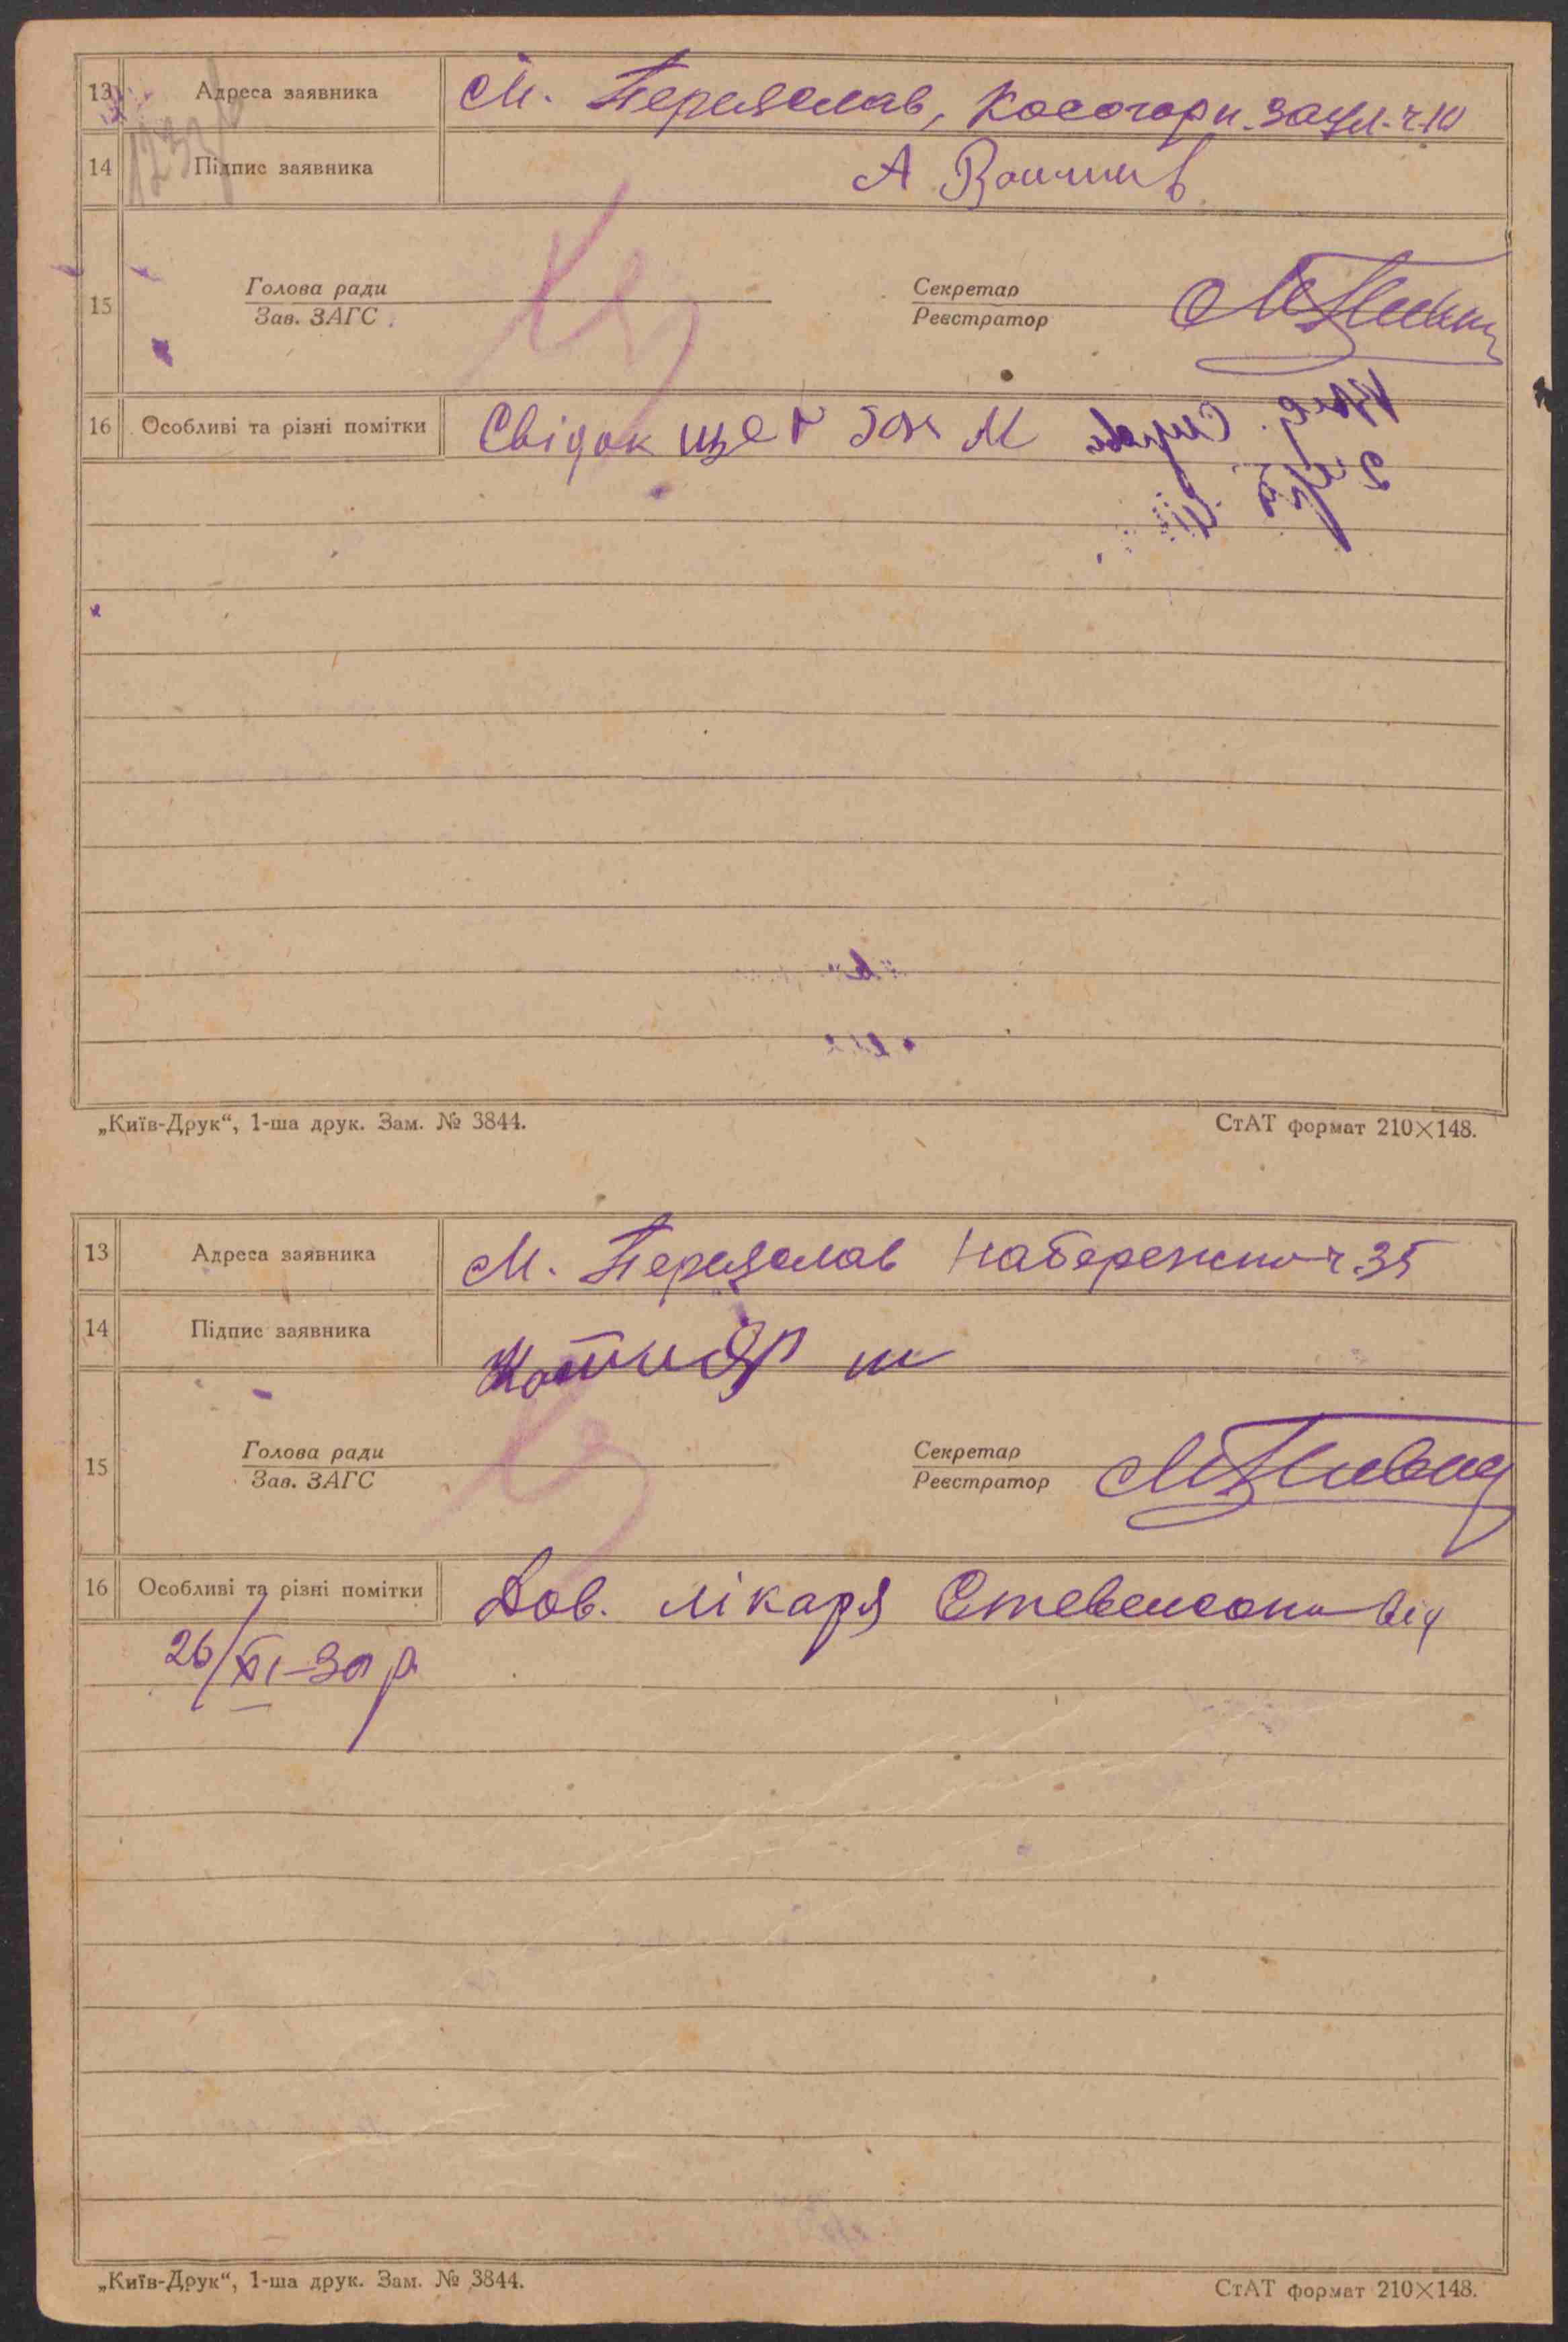 13 Адреса заявника М. Переяслав, Косогорн. заул. ч. 10
14 Підпис заявника А
Голова ради Секретар
15
Зав. ЗАГС Реєстратор
16 Особливі та різні помітки Свідок
„Київ-Друк“, 1-ша друк. Зам. № 3844. СтАТ формат 210×148.
13 Адреса заявника М. Переяслав Набережно ч. 35
14 Підпис заявника Котляр
Голова ради Секретар
15
Зав. ЗАГС Реєстратор
16 Особливі та різні помітки Дов. лікаря Стевенсона від
26/XI-30 р
„Київ-Друк“, 1-ша друк. Зам. № 3844. СтАТ формат 210×148.